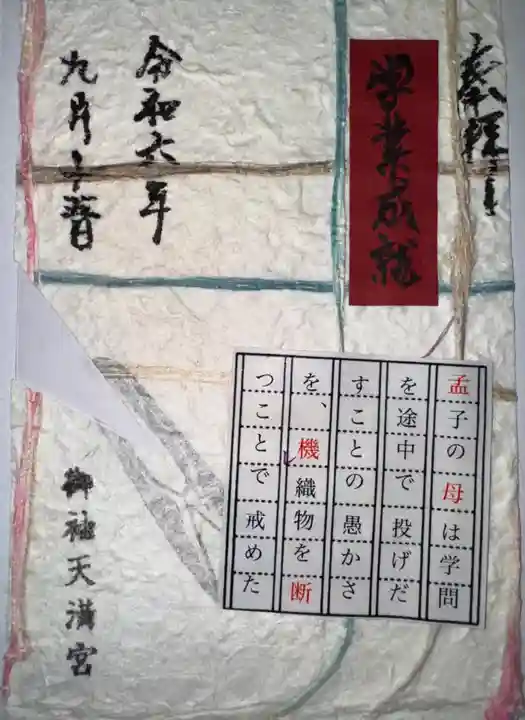 奉拝
学業成就
令和六年
九月二十八日
御袖天満宮
孟子の母は学問
を途中で投げだ
すことの愚かさ
を、機織物を断
つことで戒めた